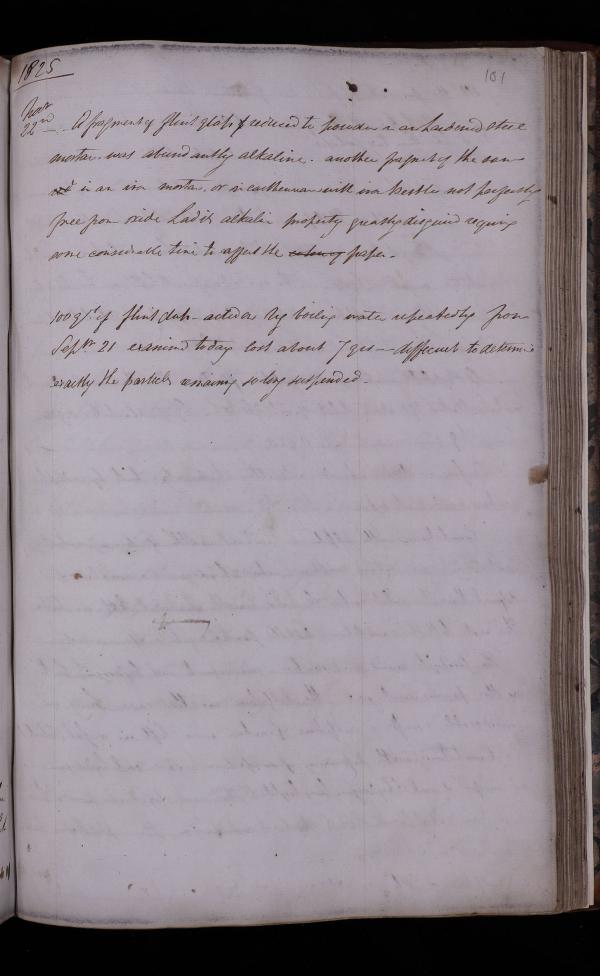 1825
101
Novr
22nd - A fragment of flint glass reduced to powder in an hardened steel
mortar was abundantly alkaline. another fragment of the same
in an iron mortar. or in earthenware with iron pestle not perfectly
free from oxide had its alkaline property greatly disguised requiring
some considerable time to affect the paper.
100 grs. of flint dust acted on by boiling water repeatedly from
Septr 21 examined today lost about 7 grs - difficult to determine
exactly the particles remaining so long suspended.